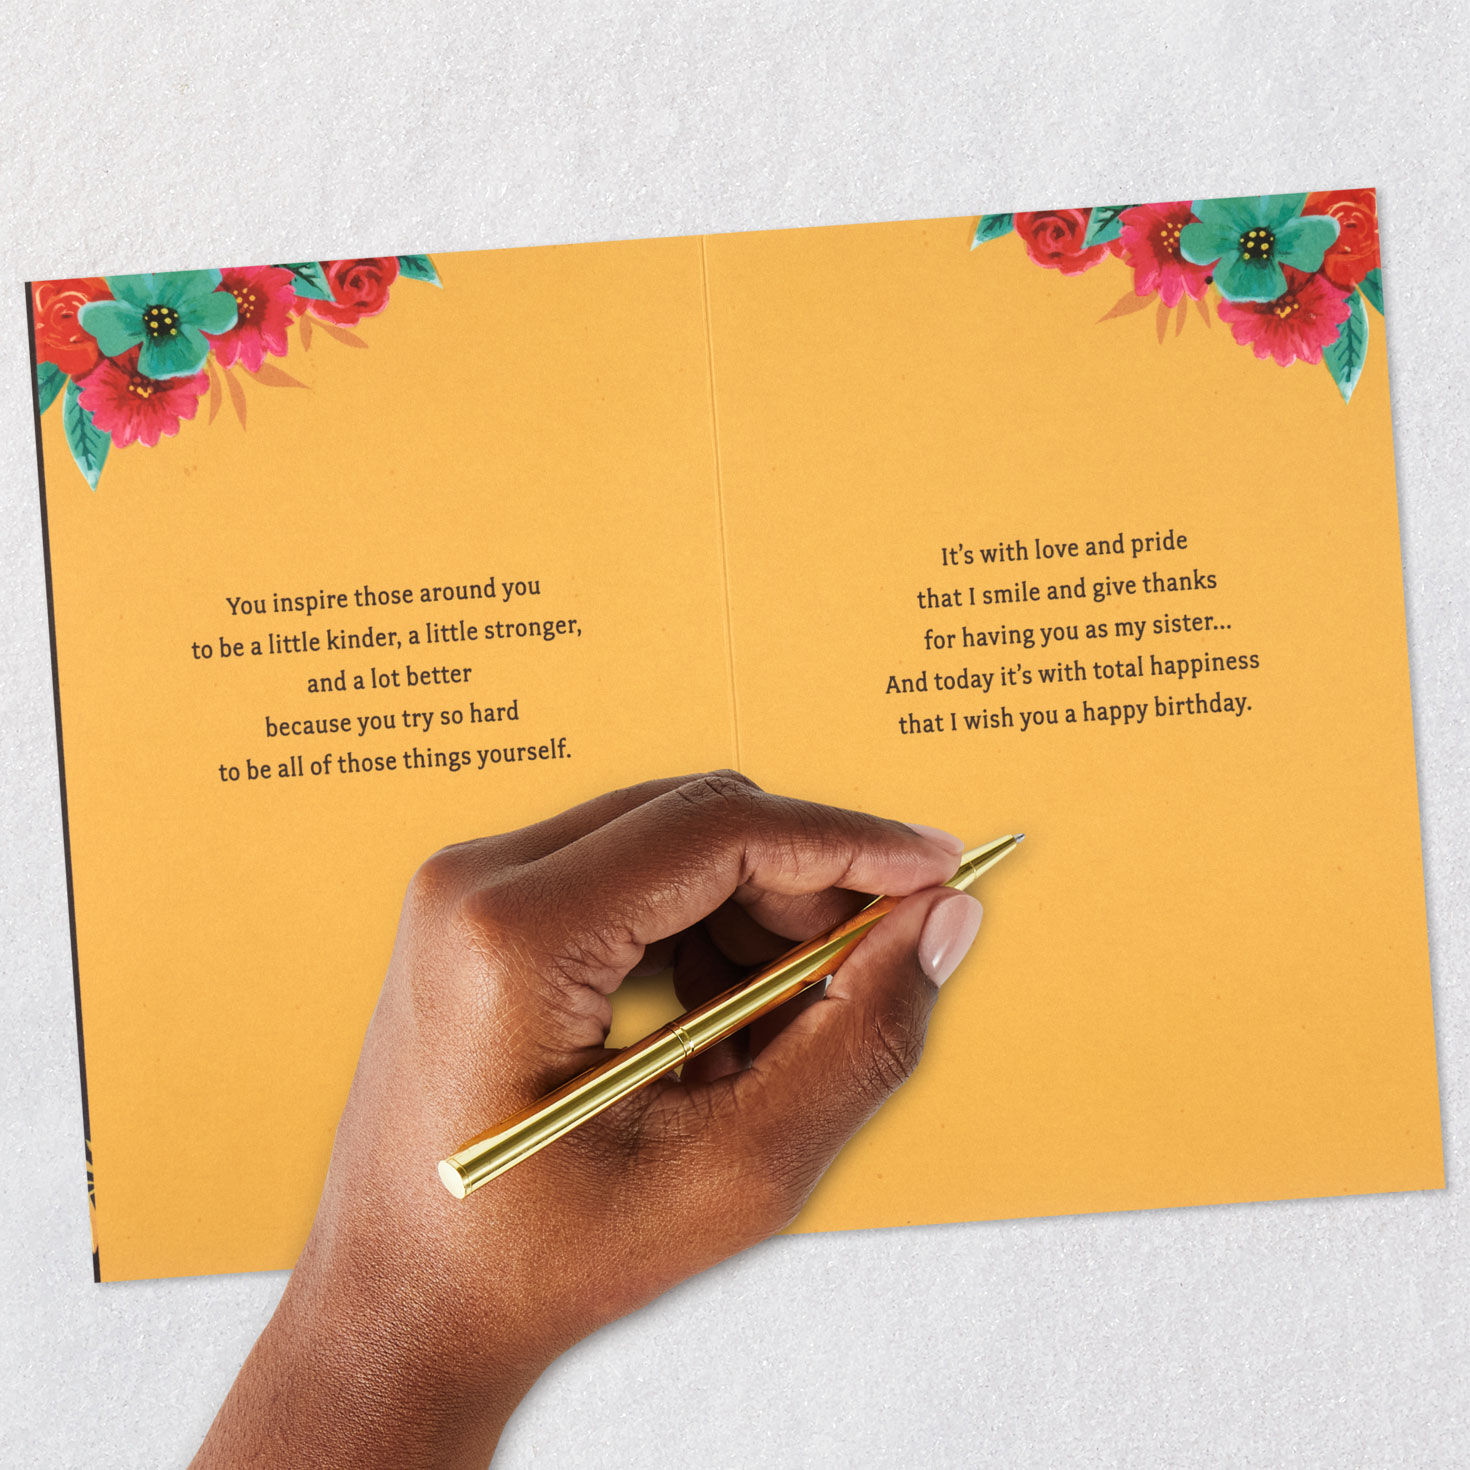 You inspire those around you
to be a little kinder, a little stronger,
and a lot better
because you try so hard
to be all of those things yourself.
It's with love and pride
that I smile and give thanks
for having you as my sister...
And today it's with total happiness
that I wish you a happy birthday.